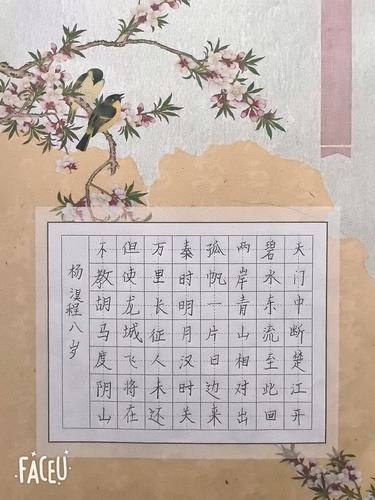 天门中断楚江开
碧水东流至此回
两岸青山相对出
孤帆一片日边来
秦时明月汉时关
万里长征人未还
但使龙城飞将在
不教胡马度阴山
杨湜程八岁
FACEU